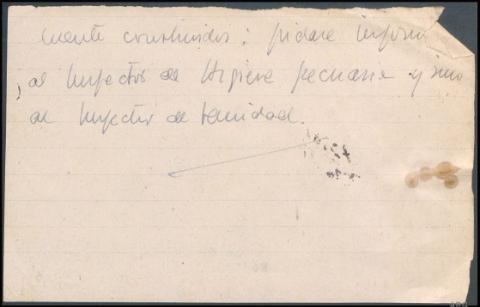 mente construidos: pidase inform
al Inspector de Higiene pecuaria y sino
al Inspector de Sanidad.